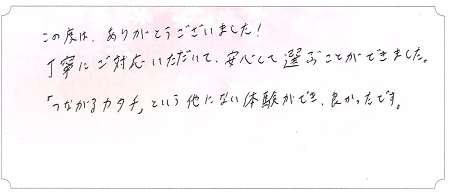 この度は、ありがとうございました!
丁寧にご対応いただいて、安心して選ぶことができました。
「つながるカタチ」という他にない体験ができ、良かったです。